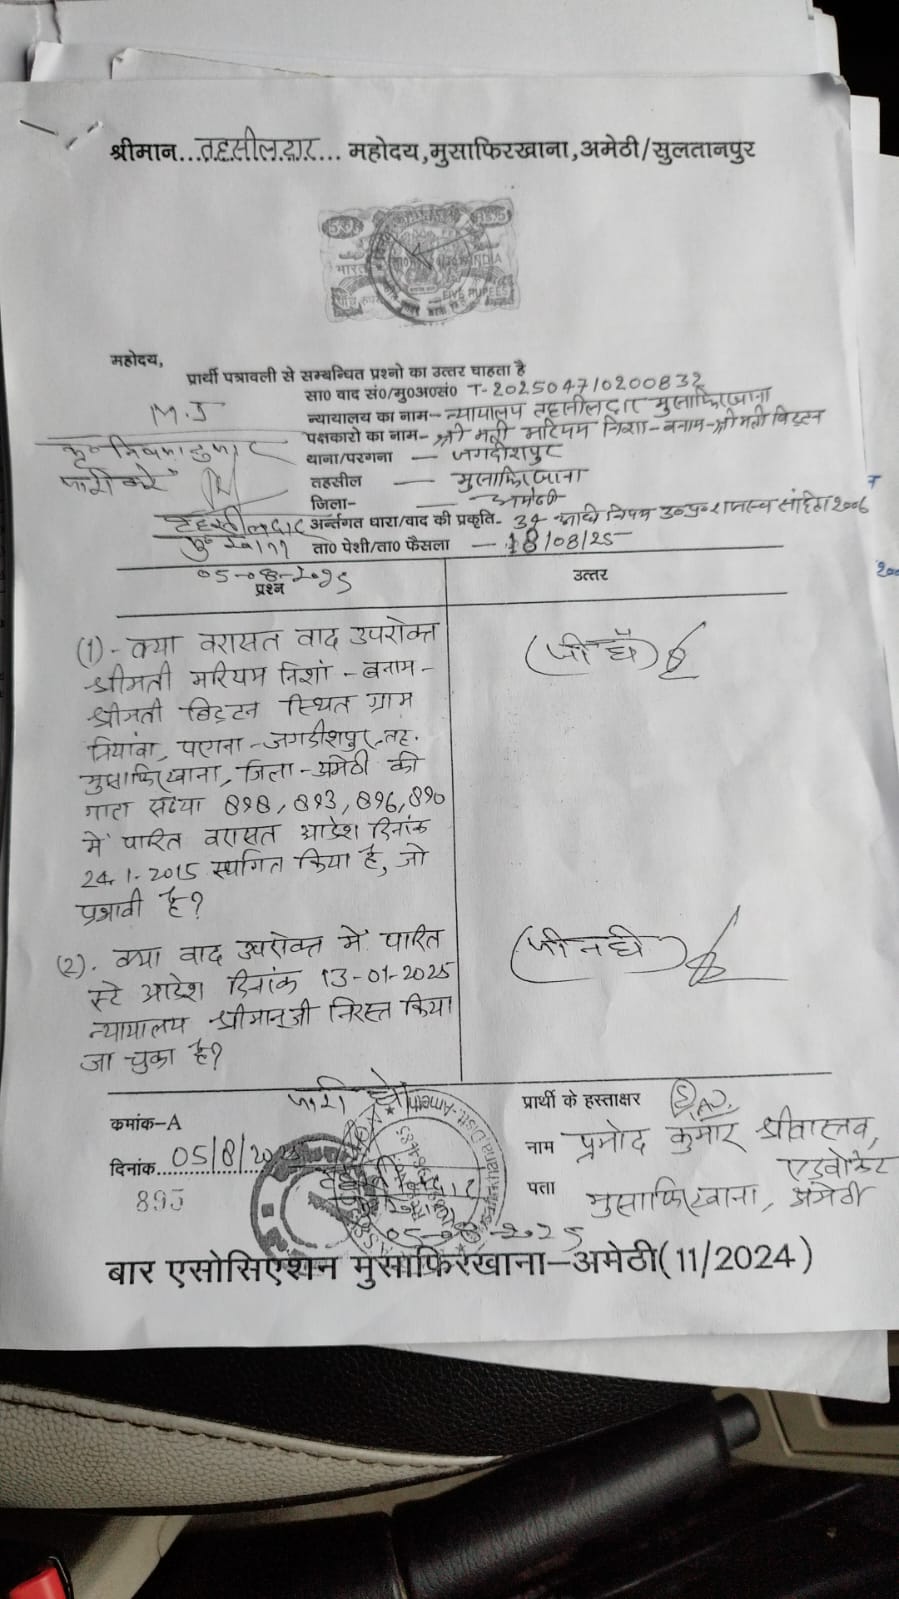 श्रीमान...तहसीलदार... महोदय,मुसाफिरखाना,अमेठी/सुलतानपुर
भारत INDIA
FIVE RUPEES
महोदय,
प्रार्थी पत्रावली से सम्बन्धित प्रश्नो का उत्तर चाहता है
सा० वाद सं०/मु०अ०सं० T-202504710200832
न्यायालय का नाम- न्यायालय तहसीलदार मुसाफिरखाना
पक्षकारो का नाम- श्रीमती मरियम निशा-बनाम-श्रीमती बिट्टन
थाना/परगना — जगदीशपुर
तहसील — मुसाफिरखाना
जिला- — अमेठी
अर्न्तगत धारा/वाद की प्रकृति- 34 उ०प्र० राजस्व संहिता 2006
ता० पेशी/ता० फैसला — 18/08/25
M.J
तहसीलदार
05-08-2025
प्रश्न
उत्तर
(1)- क्या वरासत वाद उपरोक्त
श्रीमती मरियम निशां - बनाम-
श्रीमती बिट्टन स्थित ग्राम
परगना-जगदीशपुर,तह.
मुसाफिरखाना, जिला-अमेठी की
गाटा संख्या 898, 893, 896, 890
में पारित वरासत आदेश दिनांक
24.1-2015 स्थगित किया है, जो
प्रभावी है?
(जी हाँ)
(2). क्या वाद उपरोक्त में पारित
स्टे आदेश दिनांक 13-01-2025
न्यायालय श्रीमान् जी निरस्त किया
जा चुका है?
(जी नही)
जारी हो
क्रमांक-A
दिनांक.....05/8/2025
895
तहसीलदार
05-08-2025
प्रार्थी के हस्ताक्षर
नाम प्रमोद कुमार श्रीवास्तव,
एडवोकेट
पता मुसाफिरखाना, अमेठी
बार एसोसिएशन मुसाफिरखाना–अमेठी(11/2024)